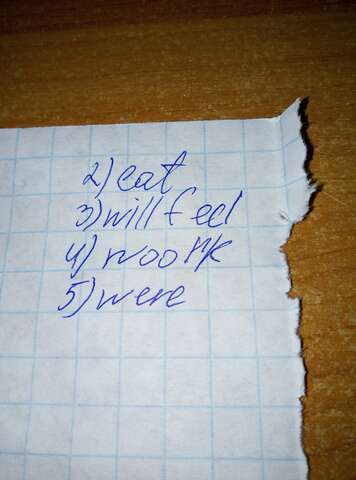 2) eat
3) will feed
4) woork
5) were